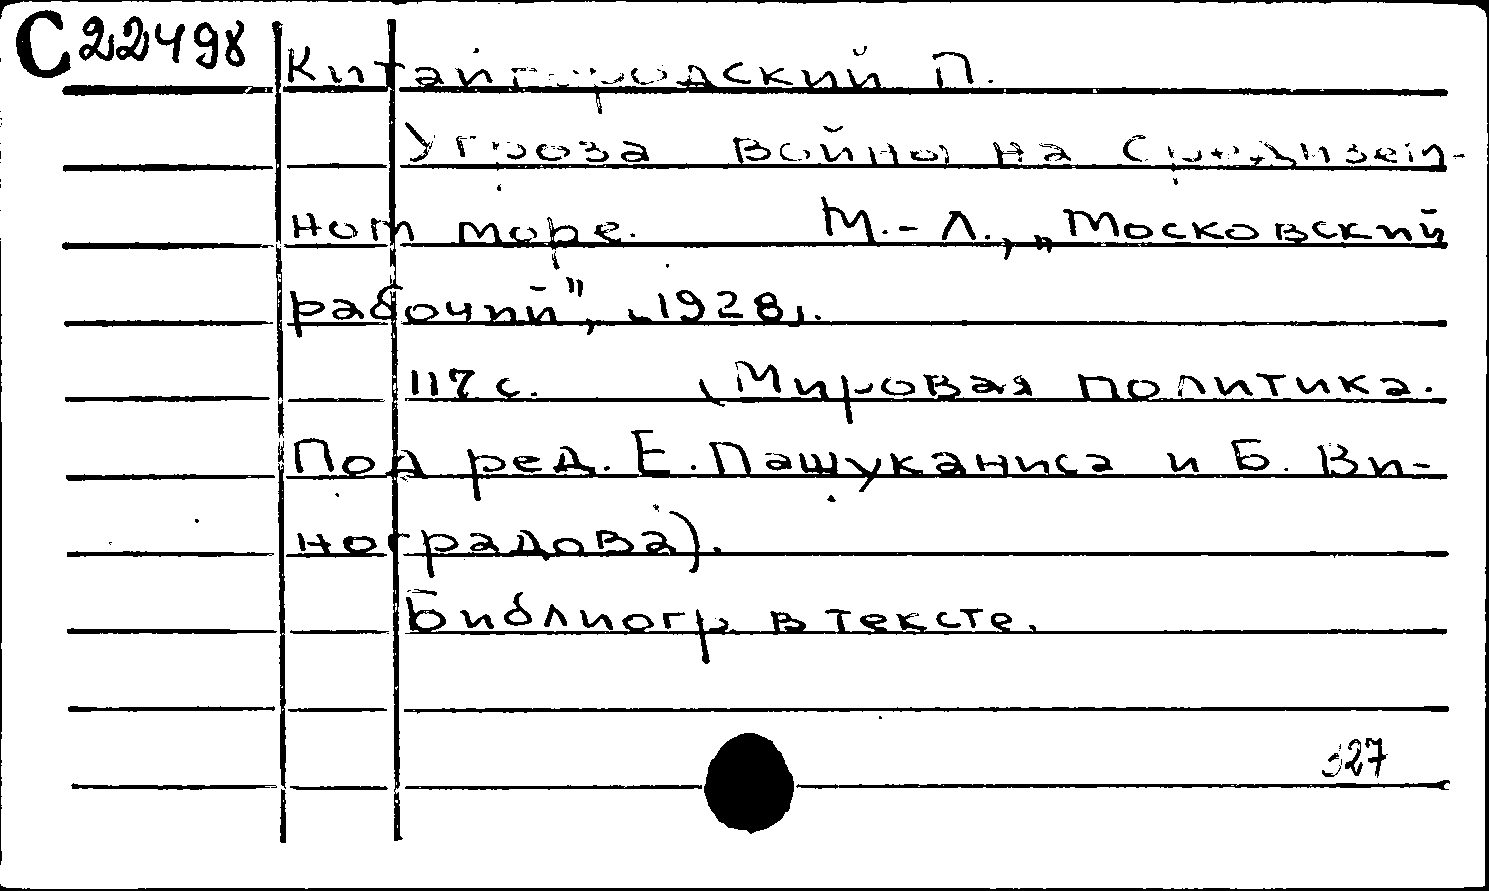 С 22498
Китайгородский П.
Угроза войны на Средизем-
ном море. М.-Л., „Московский
рабочий", 1928,.
117 с. (Мировая политика.
Под ред. Е. Пашуканиса и Б. Ви-
ноградова).
Библиогр в тексте.
327